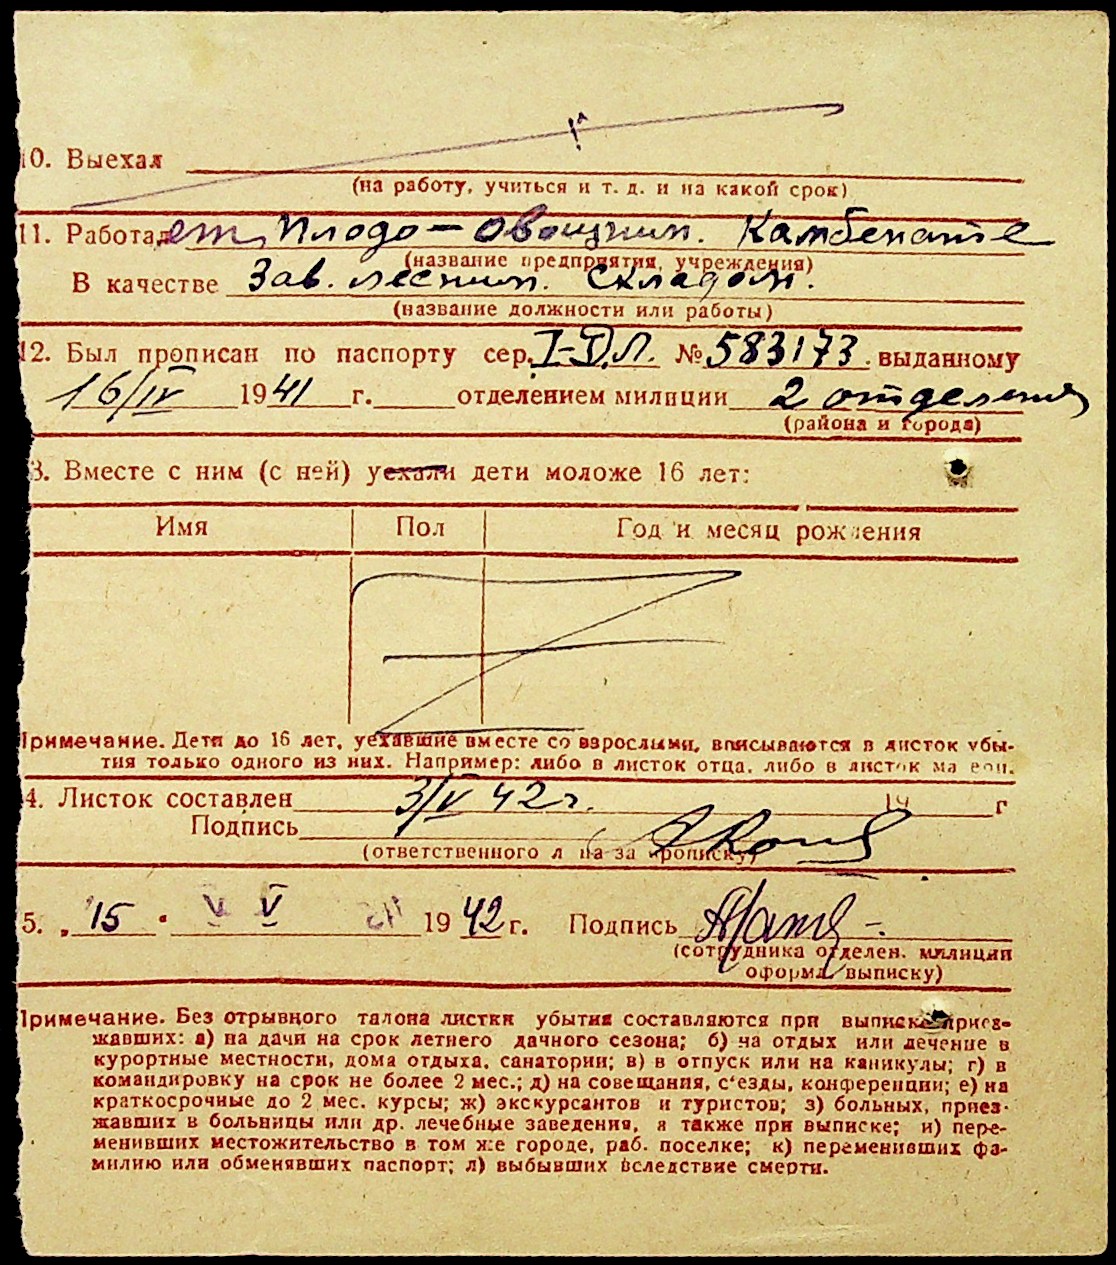 10. Выехал
(на работу, учиться и т. д. и на какой срок)
11. Работает Плодо-овощном. Камбенате
(название предприятия, учреждения)
В качестве Зав. лесным. складом.
(название должности или работы)
12. Был прописан по паспорту сер. I-Д.Л. № 583173 выданному
16/IV 1941 г. отделением милиции 2 отделения
(района и города)
3. Вместе с ним (с ней) уехали дети моложе 16 лет:
Имя Пол Год и месяц рождения
Примечание. Дети до 16 лет, уехавшие вместе со взрослыми, вписываются в листок убы-
тия только одного из них. Например: либо в листок отца, либо в листок матери.
4. Листок составлен 3/V 42 г. 19 г
Подпись
(ответственного лица за прописку)
5. „15" V V 1942 г. Подпись
(сотрудника отделен. милиции
оформ. выписку)
Примечание. Без отрывного талона листки убытия составляются при выписке приез-
жавших: а) на дачи на срок летнего дачного сезона; б) на отдых или лечение в
курортные местности, дома отдыха, санатории; в) в отпуск или на каникулы; г) в
командировку на срок не более 2 мес.; д) на совещания, с'езды, конференции; е) на
краткосрочные до 2 мес. курсы; ж) экскурсантов и туристов; з) больных, приез-
жавших в больницы или др. лечебные заведения, а также при выписке; и) пере-
менивших местожительство в том же городе, раб. поселке; к) переменивших фа-
милию или обменявших паспорт; л) выбывших вследствие смерти.